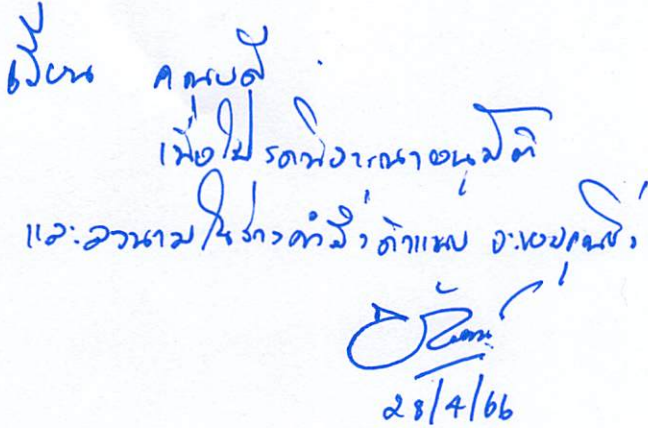 เรียน คณบดี
เพื่อโปรดพิจารณาอนุมัติ
และลงนามในร่างคำสั่งดังแนบ จะขอบคุณยิ่ง
28/4/66